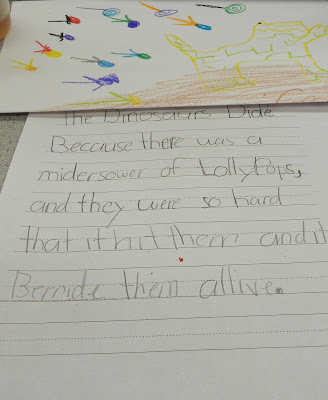 The Dinosaurs Dide
Because there was a
midersower of LollyPops,
and they were so hard
that it hit them and it
Berride them allive.